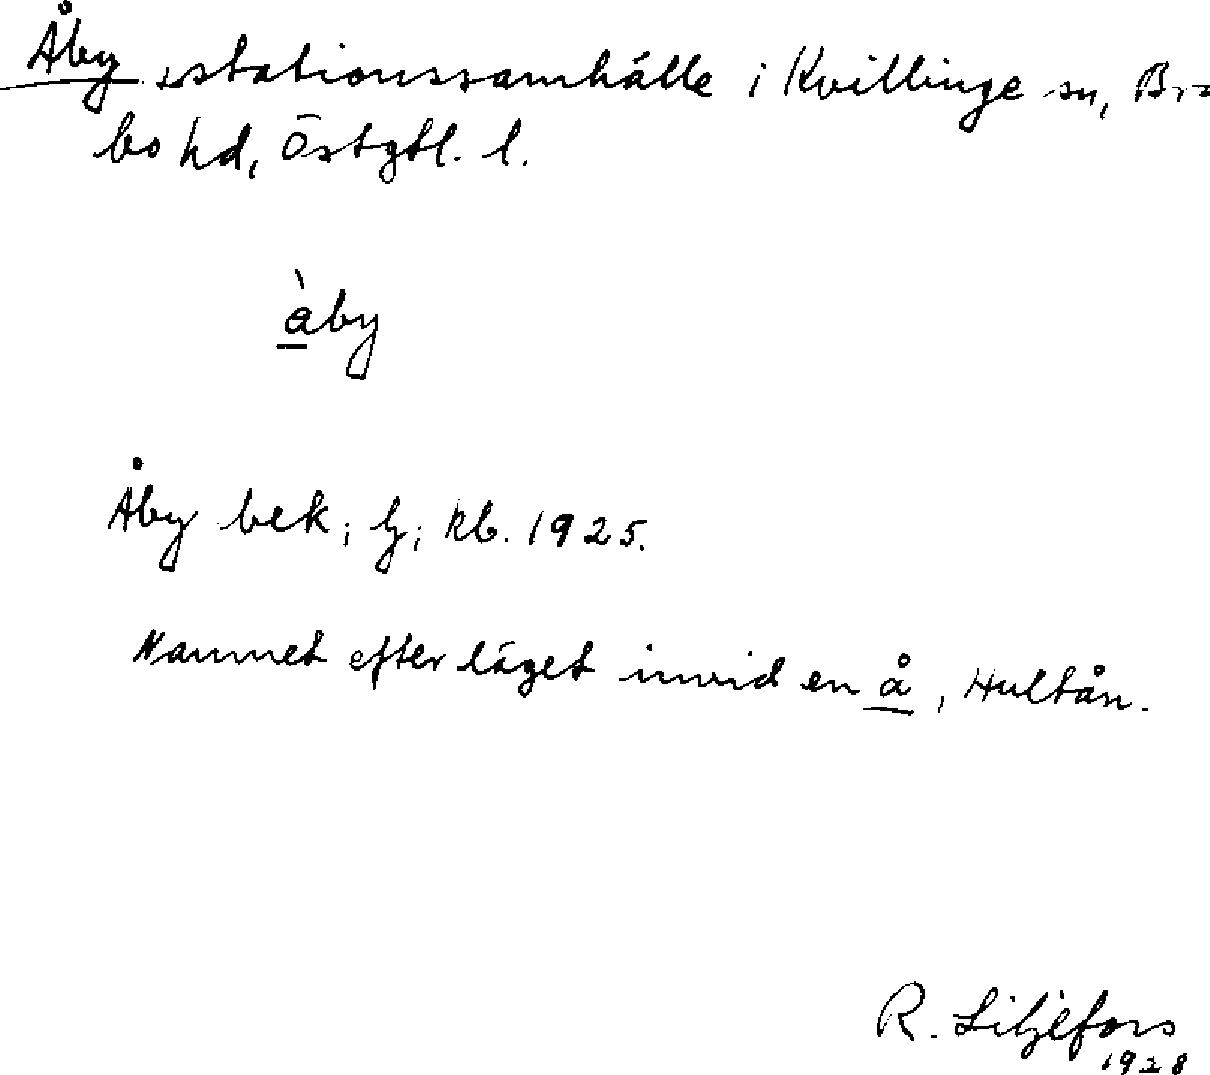 Åby, stationssamhälle i Kvillinge sn, Brå-
bo hd, Östgtl. l.
àby
Åby bek; lj; kb. 1925.
Namnet efter läget invid en å, Hultån.
R. Liljefors
1928